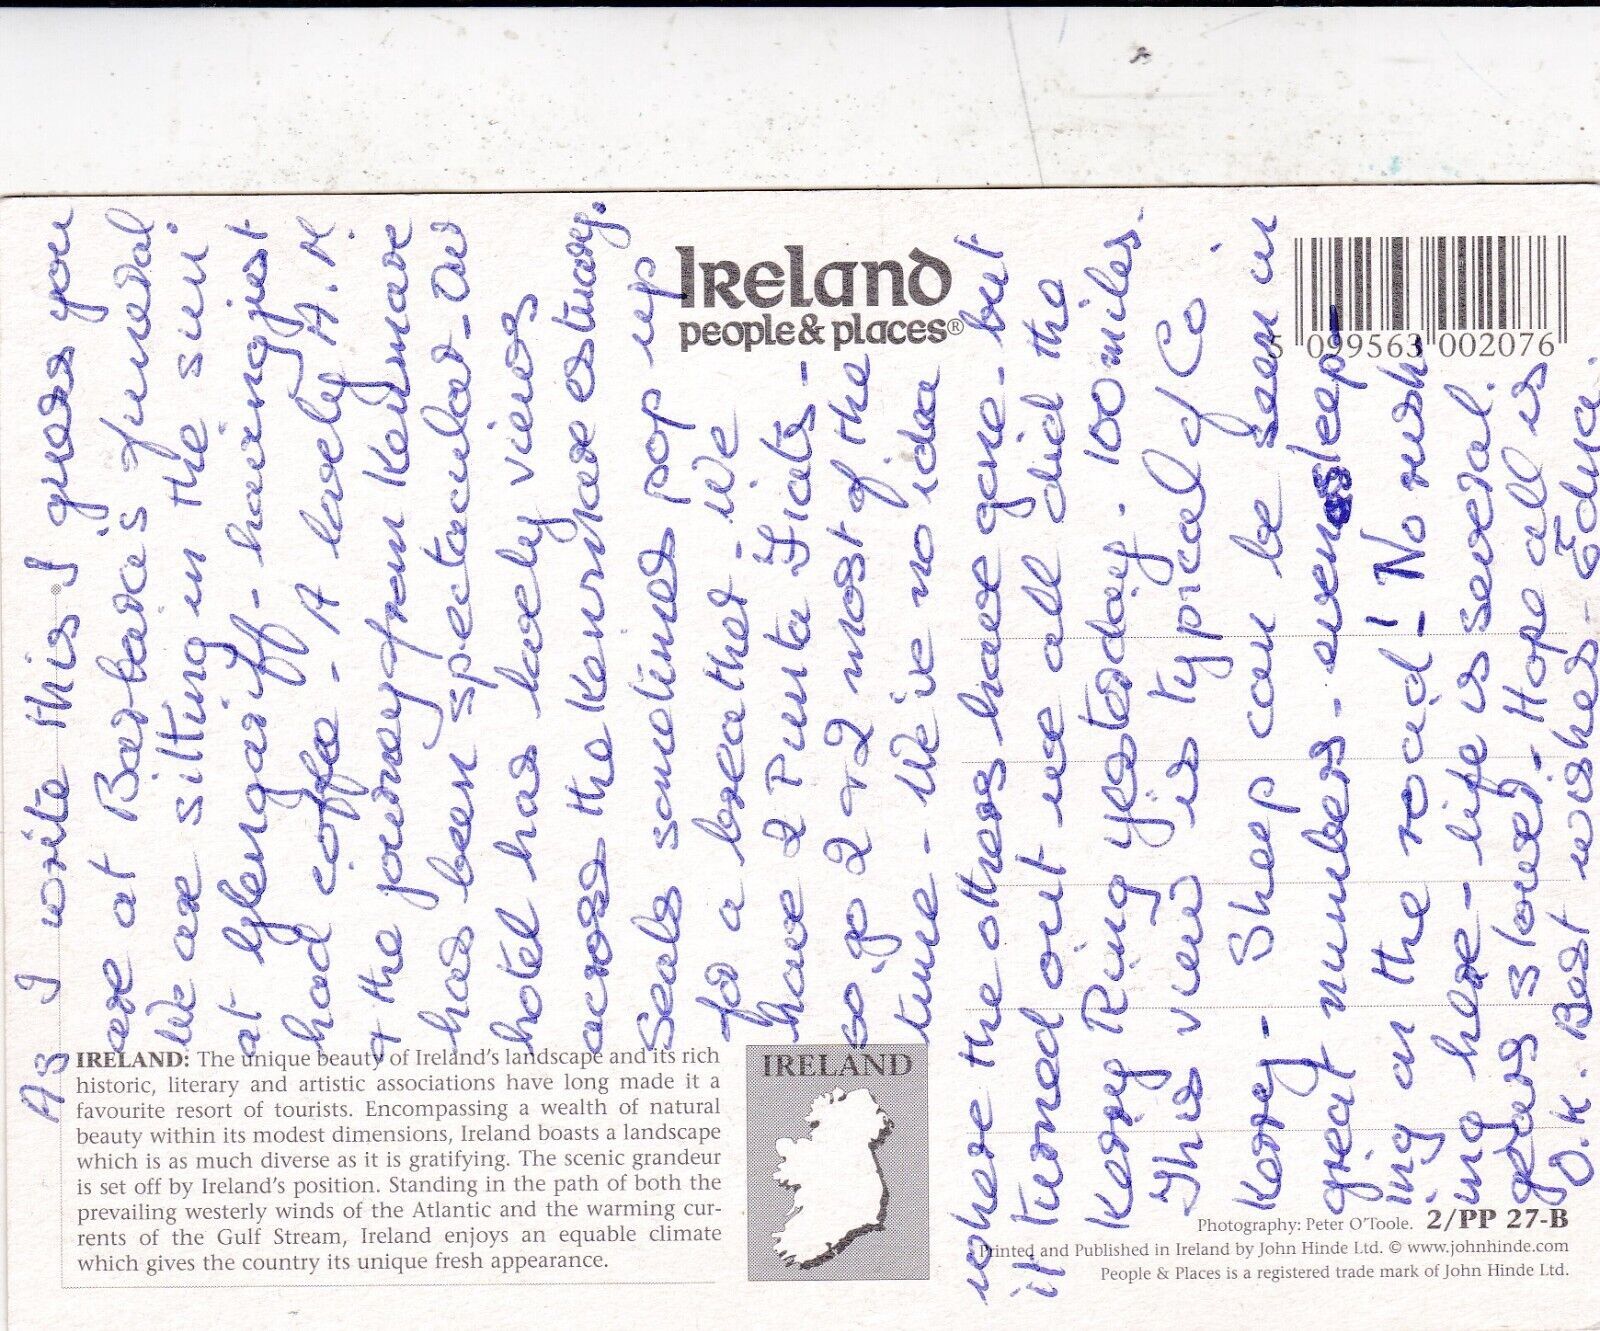 As I write this I guess you
are at Barbara's funeral
We are sitting in the sun
at Glengariff - having just
had coffee - A lovely A.M.
& the journey from Kenmare
has been spectacular - our
hotel has lovely views
across the Kenmare estuary.
Seals sometimes pop up
for a breather - We
have 2 Punta Fiats -
so go 2 + 2 most of the
time - We've no idea
where the others have gone - but
it turned out we all did the
Kerry Ring yesterday. 100 miles.
This view is typical of Co.
Kerry - Sheep can be seen in
great numbers - even sleep-
ing on the road! No rush-
ing here - life is several
gears slower - Hope all is
O.K. Best wishes - Edna.
IRELAND
people & places®
5 099563 002076
IRELAND: The unique beauty of Ireland's landscape and its rich
historic, literary and artistic associations have long made it a
favourite resort of tourists. Encompassing a wealth of natural
beauty within its modest dimensions, Ireland boasts a landscape
which is as much diverse as it is gratifying. The scenic grandeur
is set off by Ireland's position. Standing in the path of both the
prevailing westerly winds of the Atlantic and the warming cur-
rents of the Gulf Stream, Ireland enjoys an equable climate
which gives the country its unique fresh appearance.
IRELAND
Photography: Peter O'Toole. 2/PP 27-B
Printed and Published in Ireland by John Hinde Ltd. © www.johnhinde.com
People & Places is a registered trade mark of John Hinde Ltd.